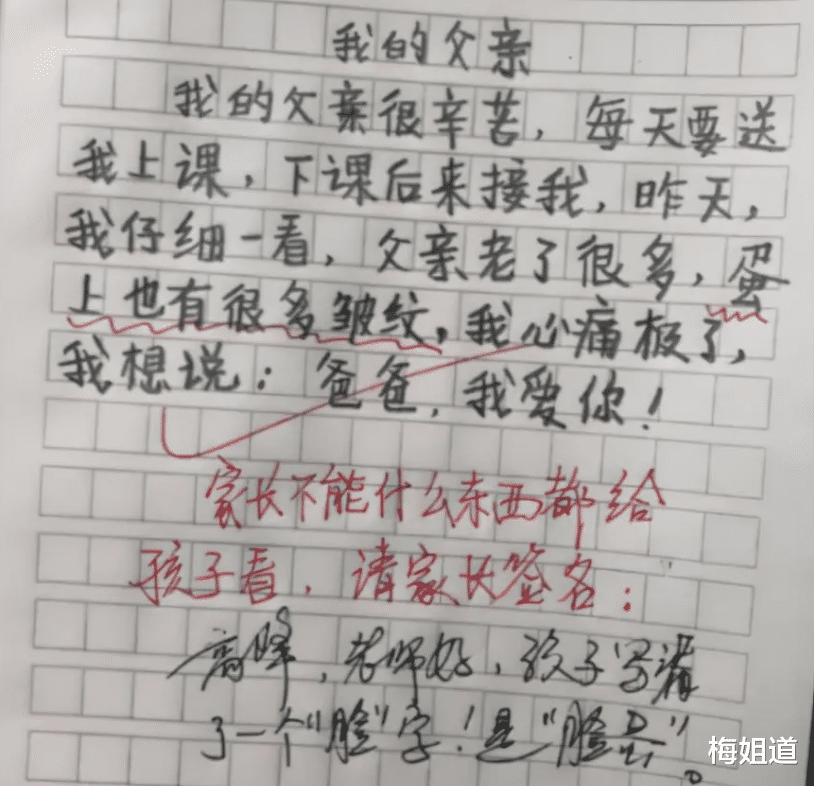 我的父亲
我的父亲很辛苦，每天要送
我上课，下课后来接我，昨天，
我仔细一看，父亲老了很多，蛋
上也有很多皱纹，我心痛极了，
我想说：爸爸，我爱你！
家长不能什么东西都给
孩子看，请家长签名：
高峰，老师好，孩子写漏
了一个“脸”字！是“脸蛋”。
梅姐道